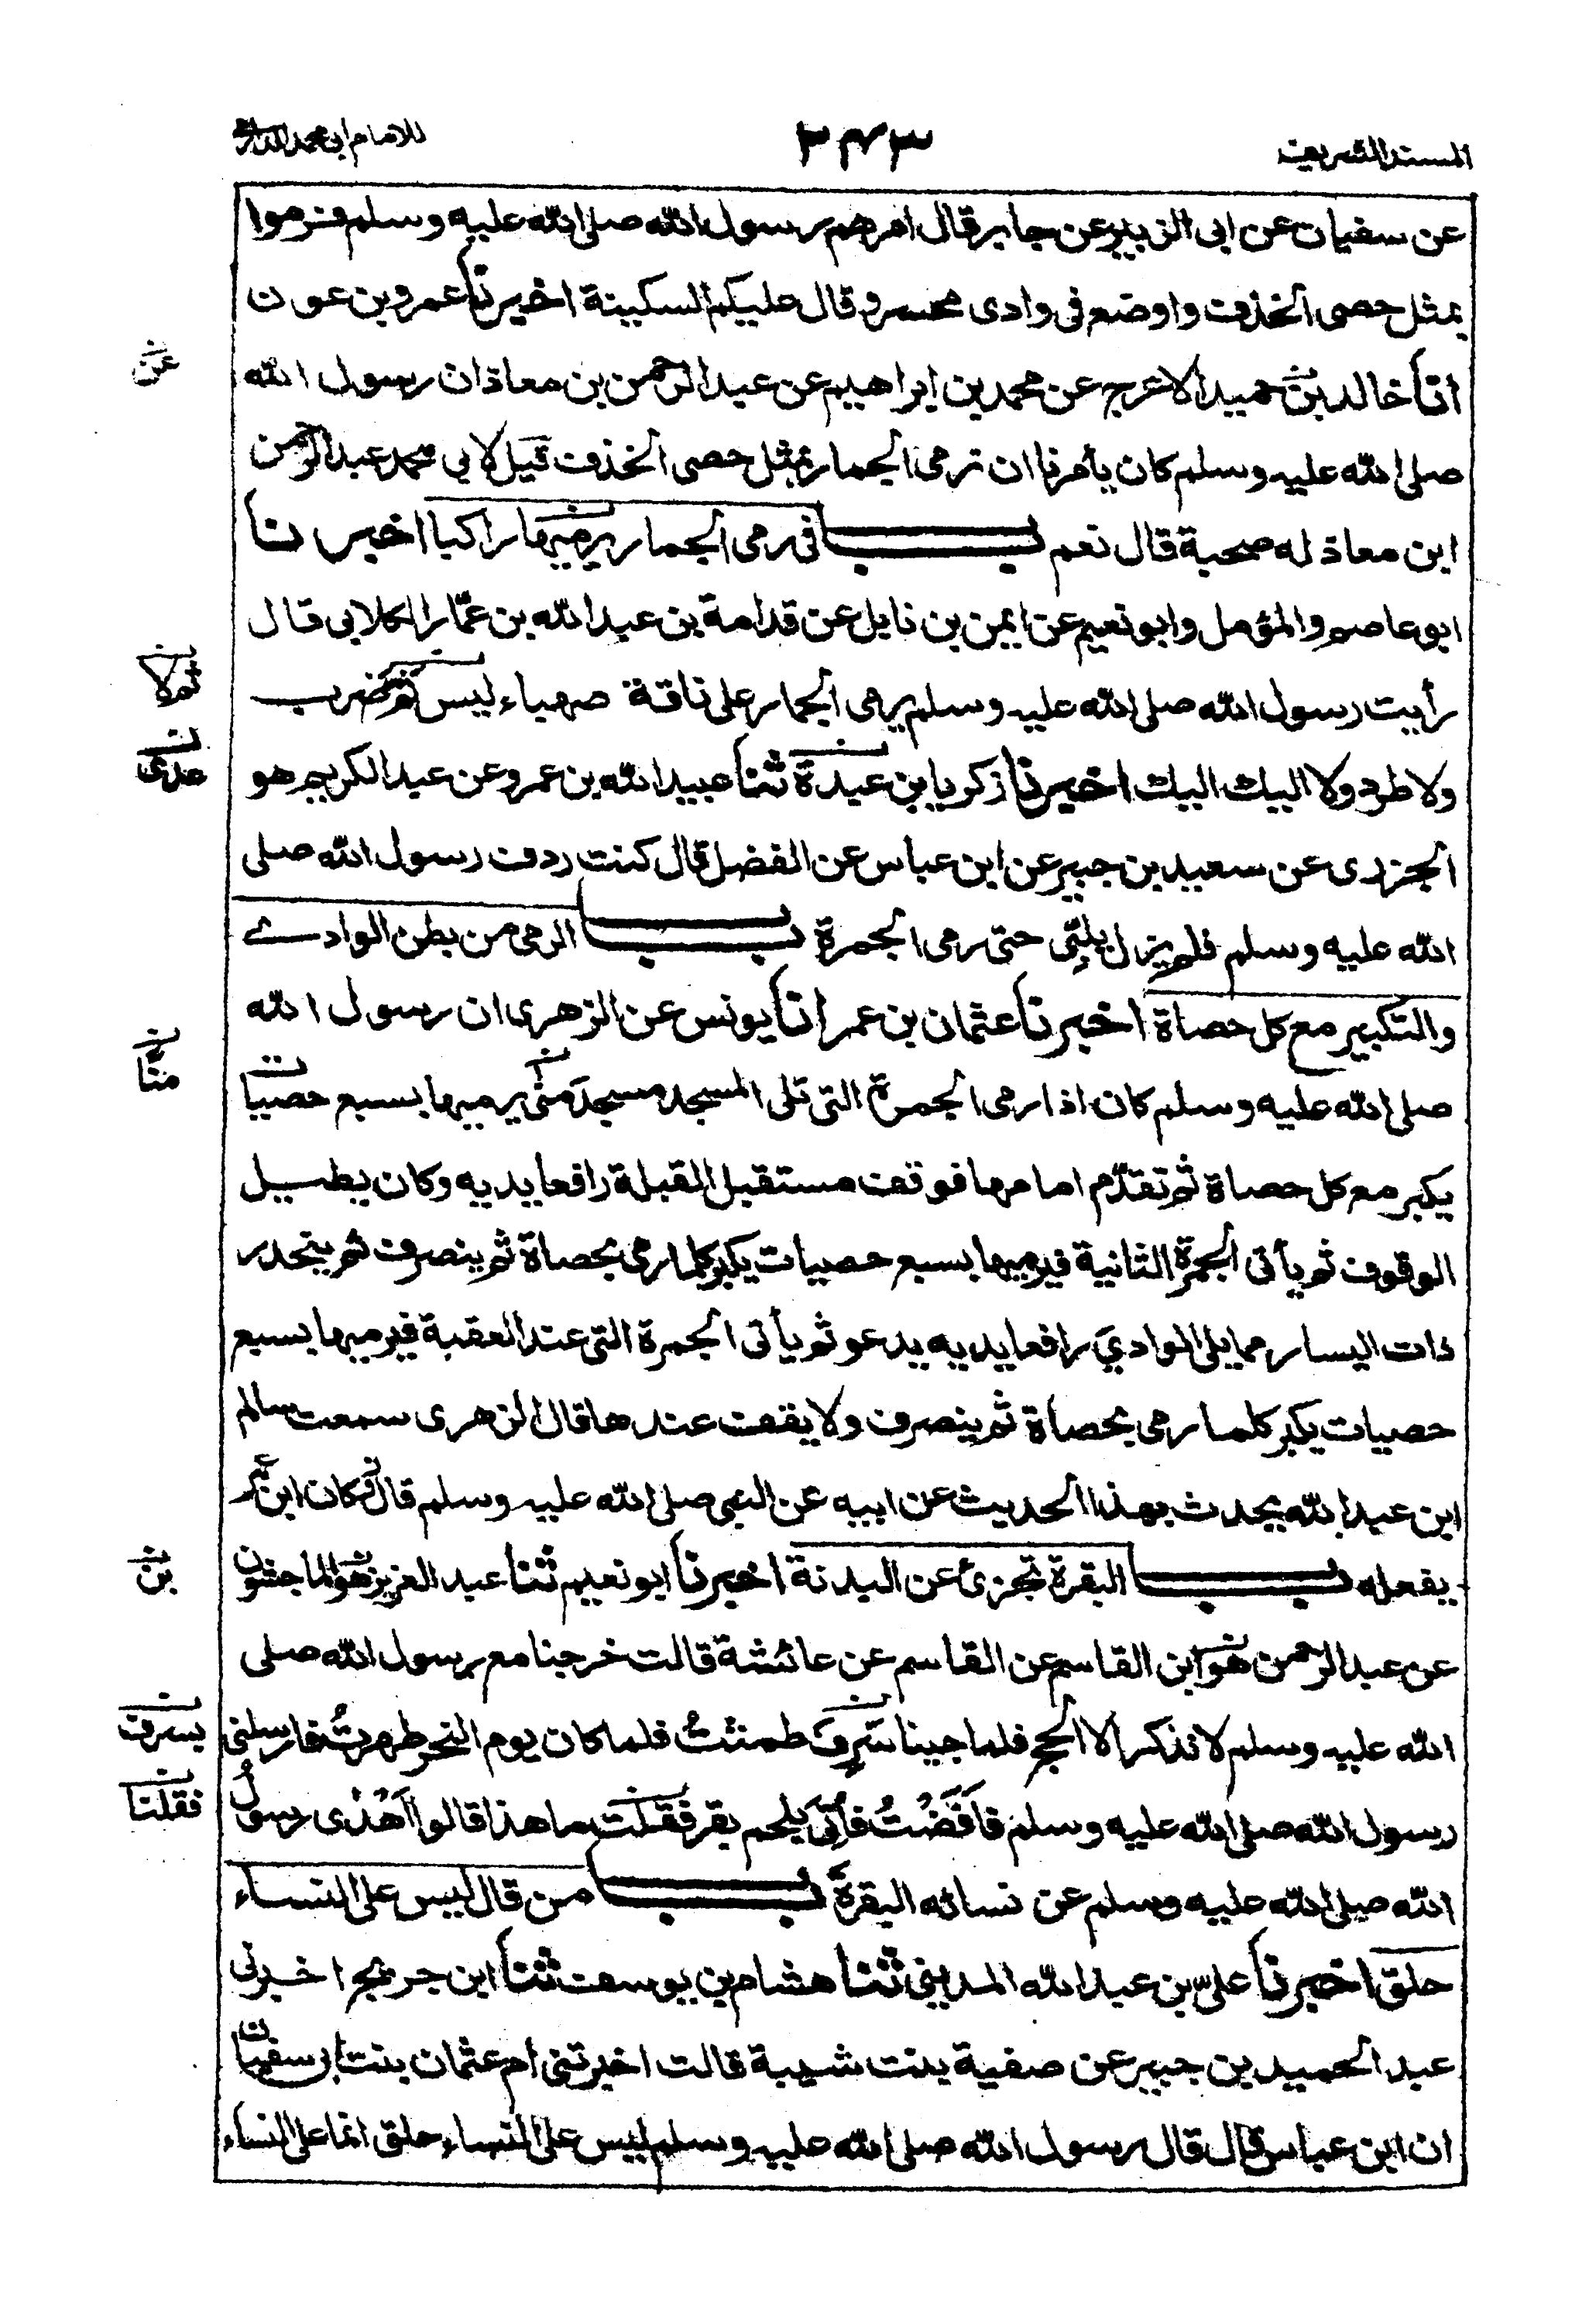 المسند الشريف
٢٤٣
للامام ابى محمد الدارمى
عن سفيان عن ابى الزبير عن جابر قال امرهم رسول الله صلى الله عليه وسلم فرموا
بمثل حصى الخذف واوضع فى وادى محسر وقال عليكم السكينة اخبرنا عمرو بن عون
انا خالد بن حميد الاعرج عن محمد بن ابراهيم عن عبد الرحمن بن معاذ ان رسول الله
عن
صلى الله عليه وسلم كان يأمرنا ان نرمى الجمار بمثل حصى الخذف قيل لابي محمد عبد الرحمن
ابن معاذ له صحبة قال نعم باب فى رمى الجمار يرميها راكبا اخبرنا
ابو عاصم والمؤمل وابو نعيم عن ايمن بن نابل عن قدامة بن عبد الله بن عمّار الكلابي قال
رأيت رسول الله صلى الله عليه وسلم يرمى الجمار على ناقة صهباء ليس ثم ضرب
ثم لا
ولا طرد ولا اليك اليك اخبرنا زكريا بن عبدة ثنا عبيد الله بن عمرو عن عبد الكريم هو
عدى
الجزرى عن سعيد بن جبير عن ابن عباس عن الفضل قال كنت ردف رسول الله صلى
الله عليه وسلم فلم يزل يلبّي حتى رمى الجمرة باب الرمى من بطن الوادي
والتكبير مع كل حصاة اخبرنا عثمان بن عمر انا يونس عن الزهرى ان رسول الله
صلى الله عليه وسلم كان اذا رمى الجمرة التى تلى المسجد مسجد منى يرميها بسبع حصيات
منًا
يكبر مع كل حصاة ثم تقدّم امامها فوقف مستقبل القبلة رافعا يديه وكان يطيل
الوقوف ثم يأتى الجمرة الثانية فيرميها بسبع حصيات يكبر كلما رمى بحصاة ثم ينصرف ثم ينحدر
ذات اليسار مما يلى الوادي رافعا يديه يدعو ثم يأتى الجمرة التى عند العقبة فيرميها بسبع
حصيات يكبر كلما رمى بحصاة ثم ينصرف ولا يقف عندها قال الزهرى سمعت سالم
ابن عبد الله يحدث بهذا الحديث عن ابيه عن النبى صلى الله عليه وسلم قال وكان ابن عمر
يفعله باب البقرة تجزئ عن البدنة اخبرنا ابو نعيم ثنا عبد العزيز هو الماجشون
بن
عن عبد الرحمن هو ابن القاسم عن القاسم عن عائشة قالت خرجنا مع رسول الله صلى
الله عليه وسلم لا نذكر الا الحج فلما جينا سَرِفَ طمثتُ فلما كان يوم النحر طهرتُ فارسلنى
بسرف
رسول الله صلى الله عليه وسلم فَأَفَضْتُ فأُتِىَ بلحم بقر فقلت ما هذا قالوا اَهْدٰى رسولُ
فقلنا
الله صلى الله عليه وسلم عن نسائه البقرةَ باب من قال ليس على النساء
حلق اخبرنا علىّ بن عبد الله المدينى ثنا هشام بن يوسف ثنا ابن جريج اخبرنى
عبد الحميد بن جبير عن صفية بنت شيبة قالت اخبرتنى ام عثمان بنت ابى سفيان
ان ابن عباس قال قال رسول الله صلى الله عليه وسلم ليس على النساء حلق انما على النساء